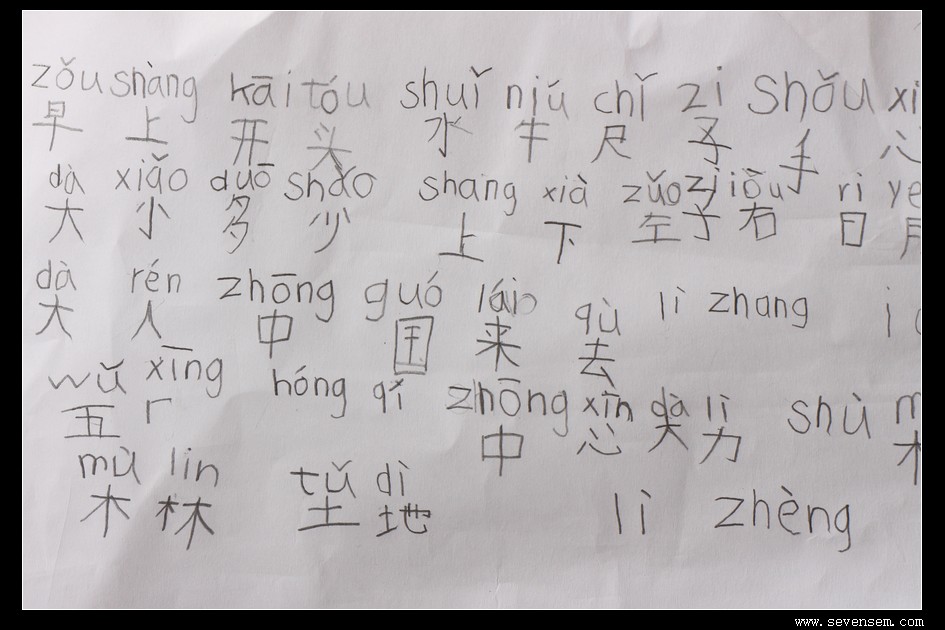 zǒu shàng kāi tóu shuǐ niú chǐ zi shǒu xi
早 上 开 头 水 牛 尺 子 手 心
dà xiǎo duō shǎo shang xià zǔo zi iòu rì ye
大 小 多 少 上 下 左 子 右 日 月
dà rén zhōng guó lái qù lì zhang i
大 人 中 国 来 去
wǔ xīng hóng qí zhōng xīn dà lì shù m
五 中 心 大 力 木
mù lin tǔ dì lì zhèng
木 林 土 地
www.sevensem.com